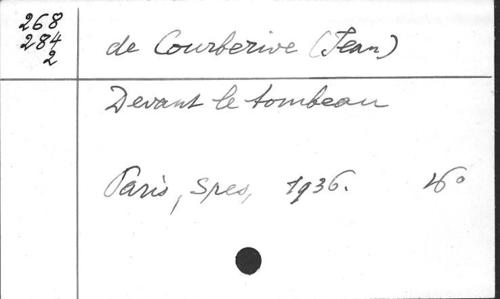 268
284
2
de Courberive (Jean)
Devant le tombeau
Paris, Spes, 1936. 16°